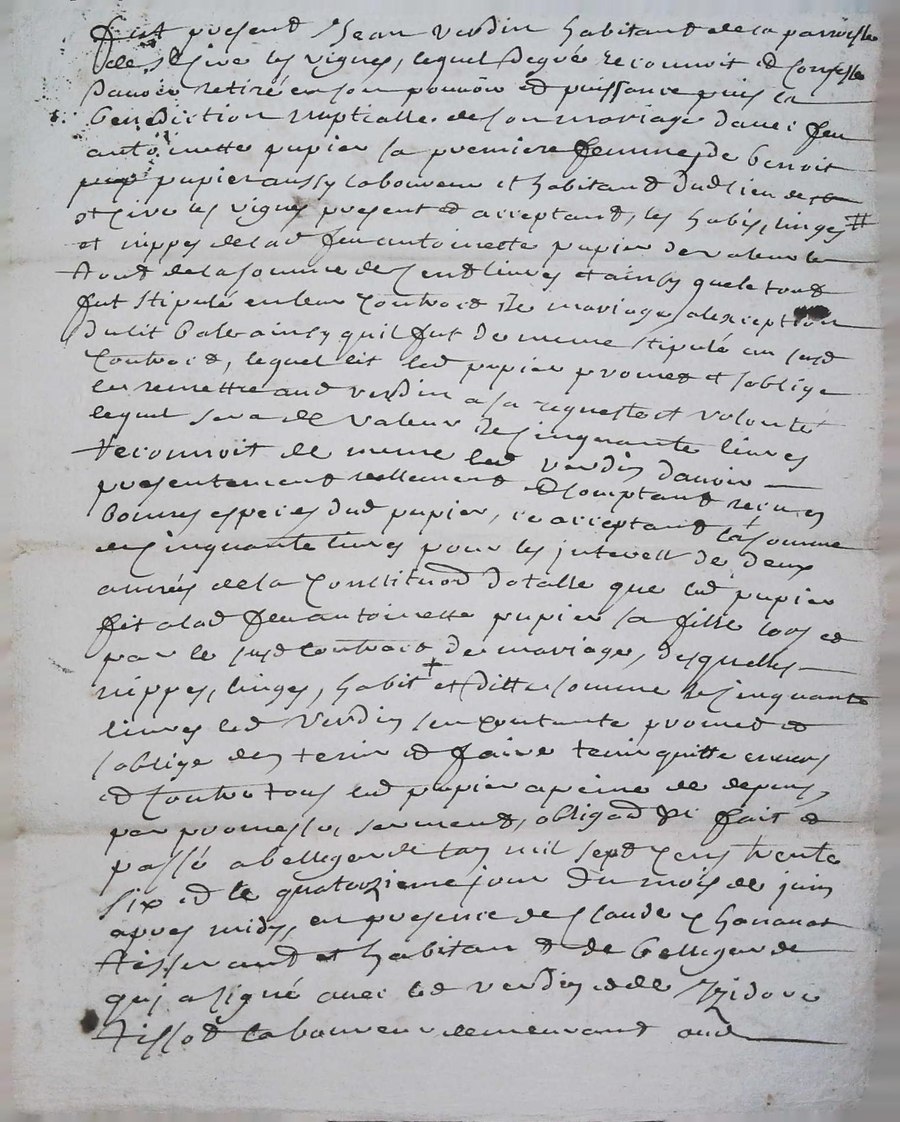 fut present Jean Verdin habitant de la parroisse
de St Cire les vignes, lequel de gré reconnoit et confesse
davoir retiré en son pouvoir et puissance puis la
benediction nuptialle de son mariage davec feu
antoinette papier sa premiere femme, de benoit
papier aussy laboureur et habitant dud lieu de
st Cire les vignes present et acceptant, les habis, linges #
et nippes de lad feu antoinette papier de valeur le
tout de la somme de cent livres et ainsy que le tout
fut stipulé en leur contract de mariage, alexception
dulit palc ainsy quil fut de meme stipulé au susd
contract, lequel lit led papier promet et soblige
luy remettre aud verdin a sa requeste et volonté
lequel sera de valeur de cinquante livres
reconnoit de meme led verdin davoir
presentement reellement et comptant receu en
bonnes especes dud papier, ce acceptant la somme
de cinquante livres pour les interests de deux
années de la constituon dotalle que led papier
fit a lad feu antoinette papier sa fille lors et
par le susd contract de mariage, desquelles
nippes, linges, habit + et ditte somme de cinquante
livres led verdin se contente promet et
soblige den tenir et faire tenir quitte envers
et contre tous led papier a peine de depens,
par promesse, serment, obligaon &c fait et
passé a bellegarde lan mil sept cens trente
six et le quatorzieme jour du mois de juin
apres midy, en presence de Claude
tisserand et habitant de bellegarde
qui a signé avec led verdin et de Izidore
tissot laboureur demeurant aud